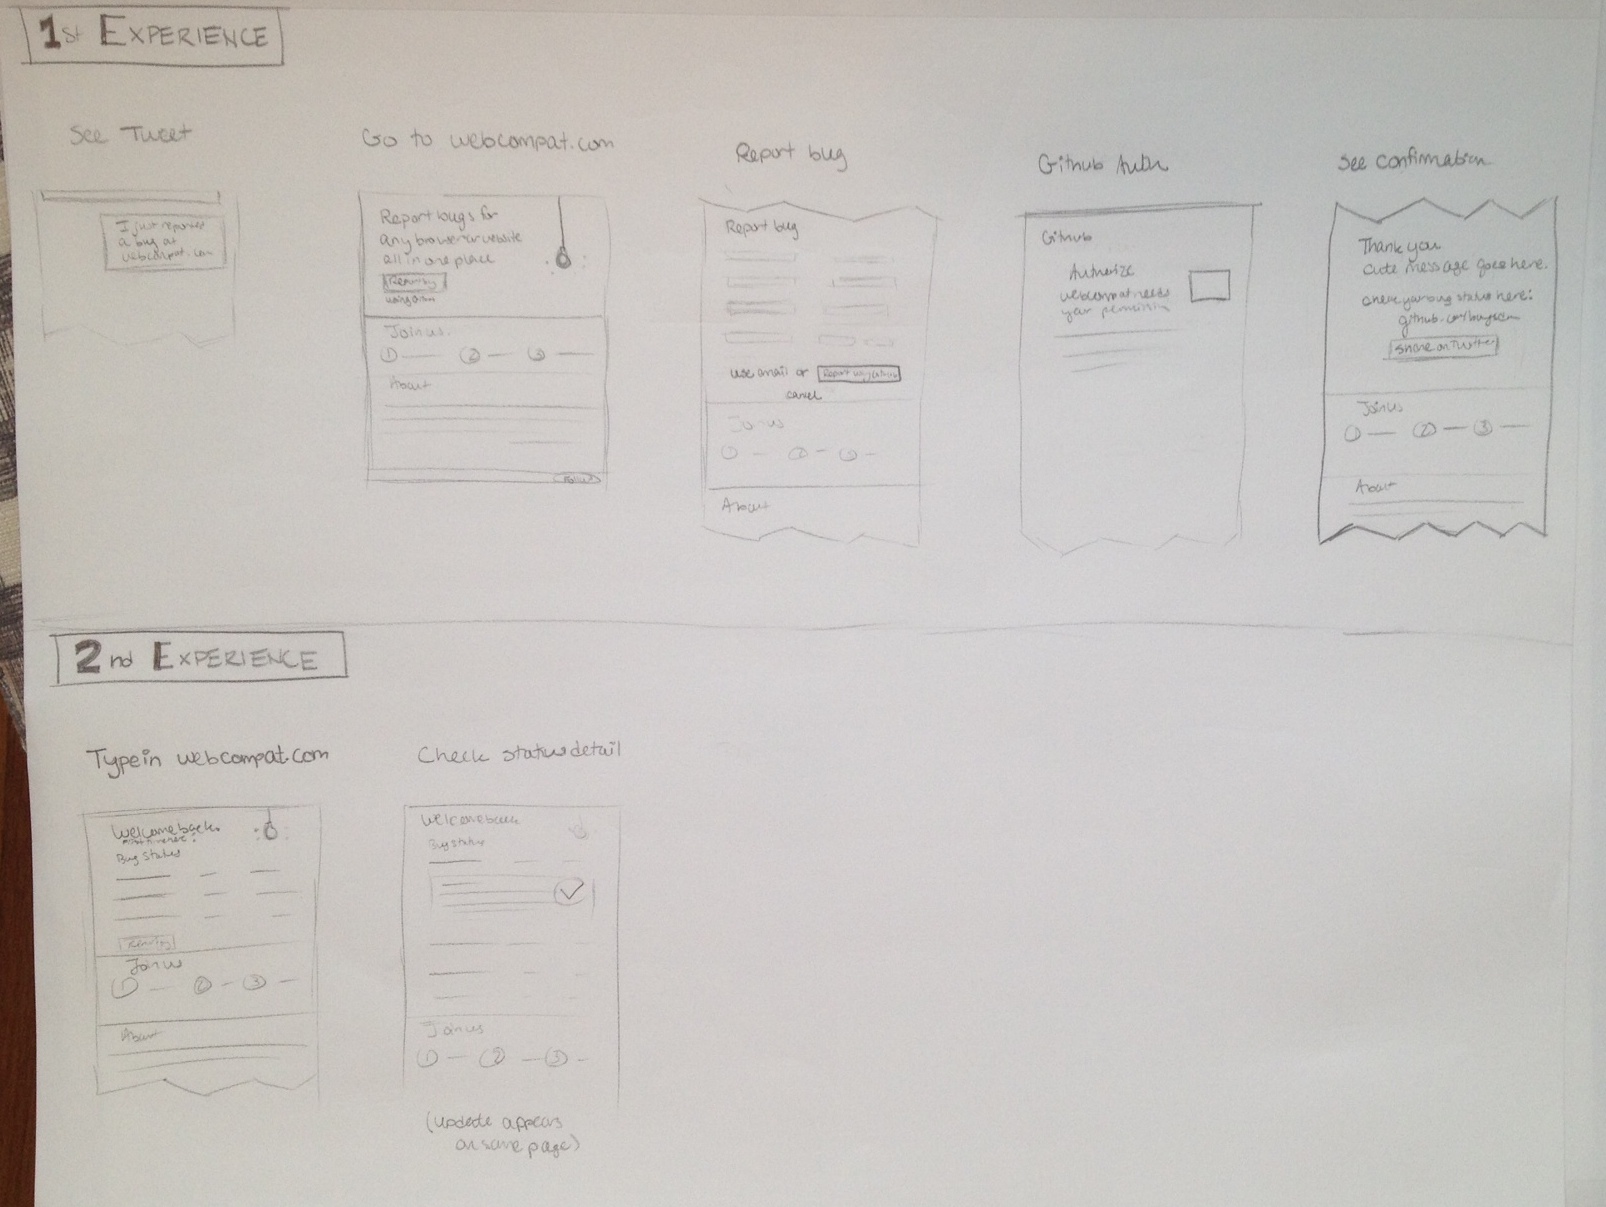 1st EXPERIENCE
See Tweet
I just reported
a bug at
webcompat.com
Go to webcompat.com
Report bugs for
any browser or website
all in one place
Report bug
Join us.
1 2 3
About
Report bug
Report bug
use email or
cancel
Join us
1 2 3
About
Github Auth
Github
Authorize
webcompat needs
your permission
See confirmation
Thank you
cute message goes here.
check your bug status here:
Share on Twitter
Join us
1 2 3
About
2nd EXPERIENCE
Type in webcompat.com
Welcome back.
Bug Status
Join us
1 2 3
About
Check status detail
Welcome back
Bug Status
Join us
1 2 3
(update appears
on same page)